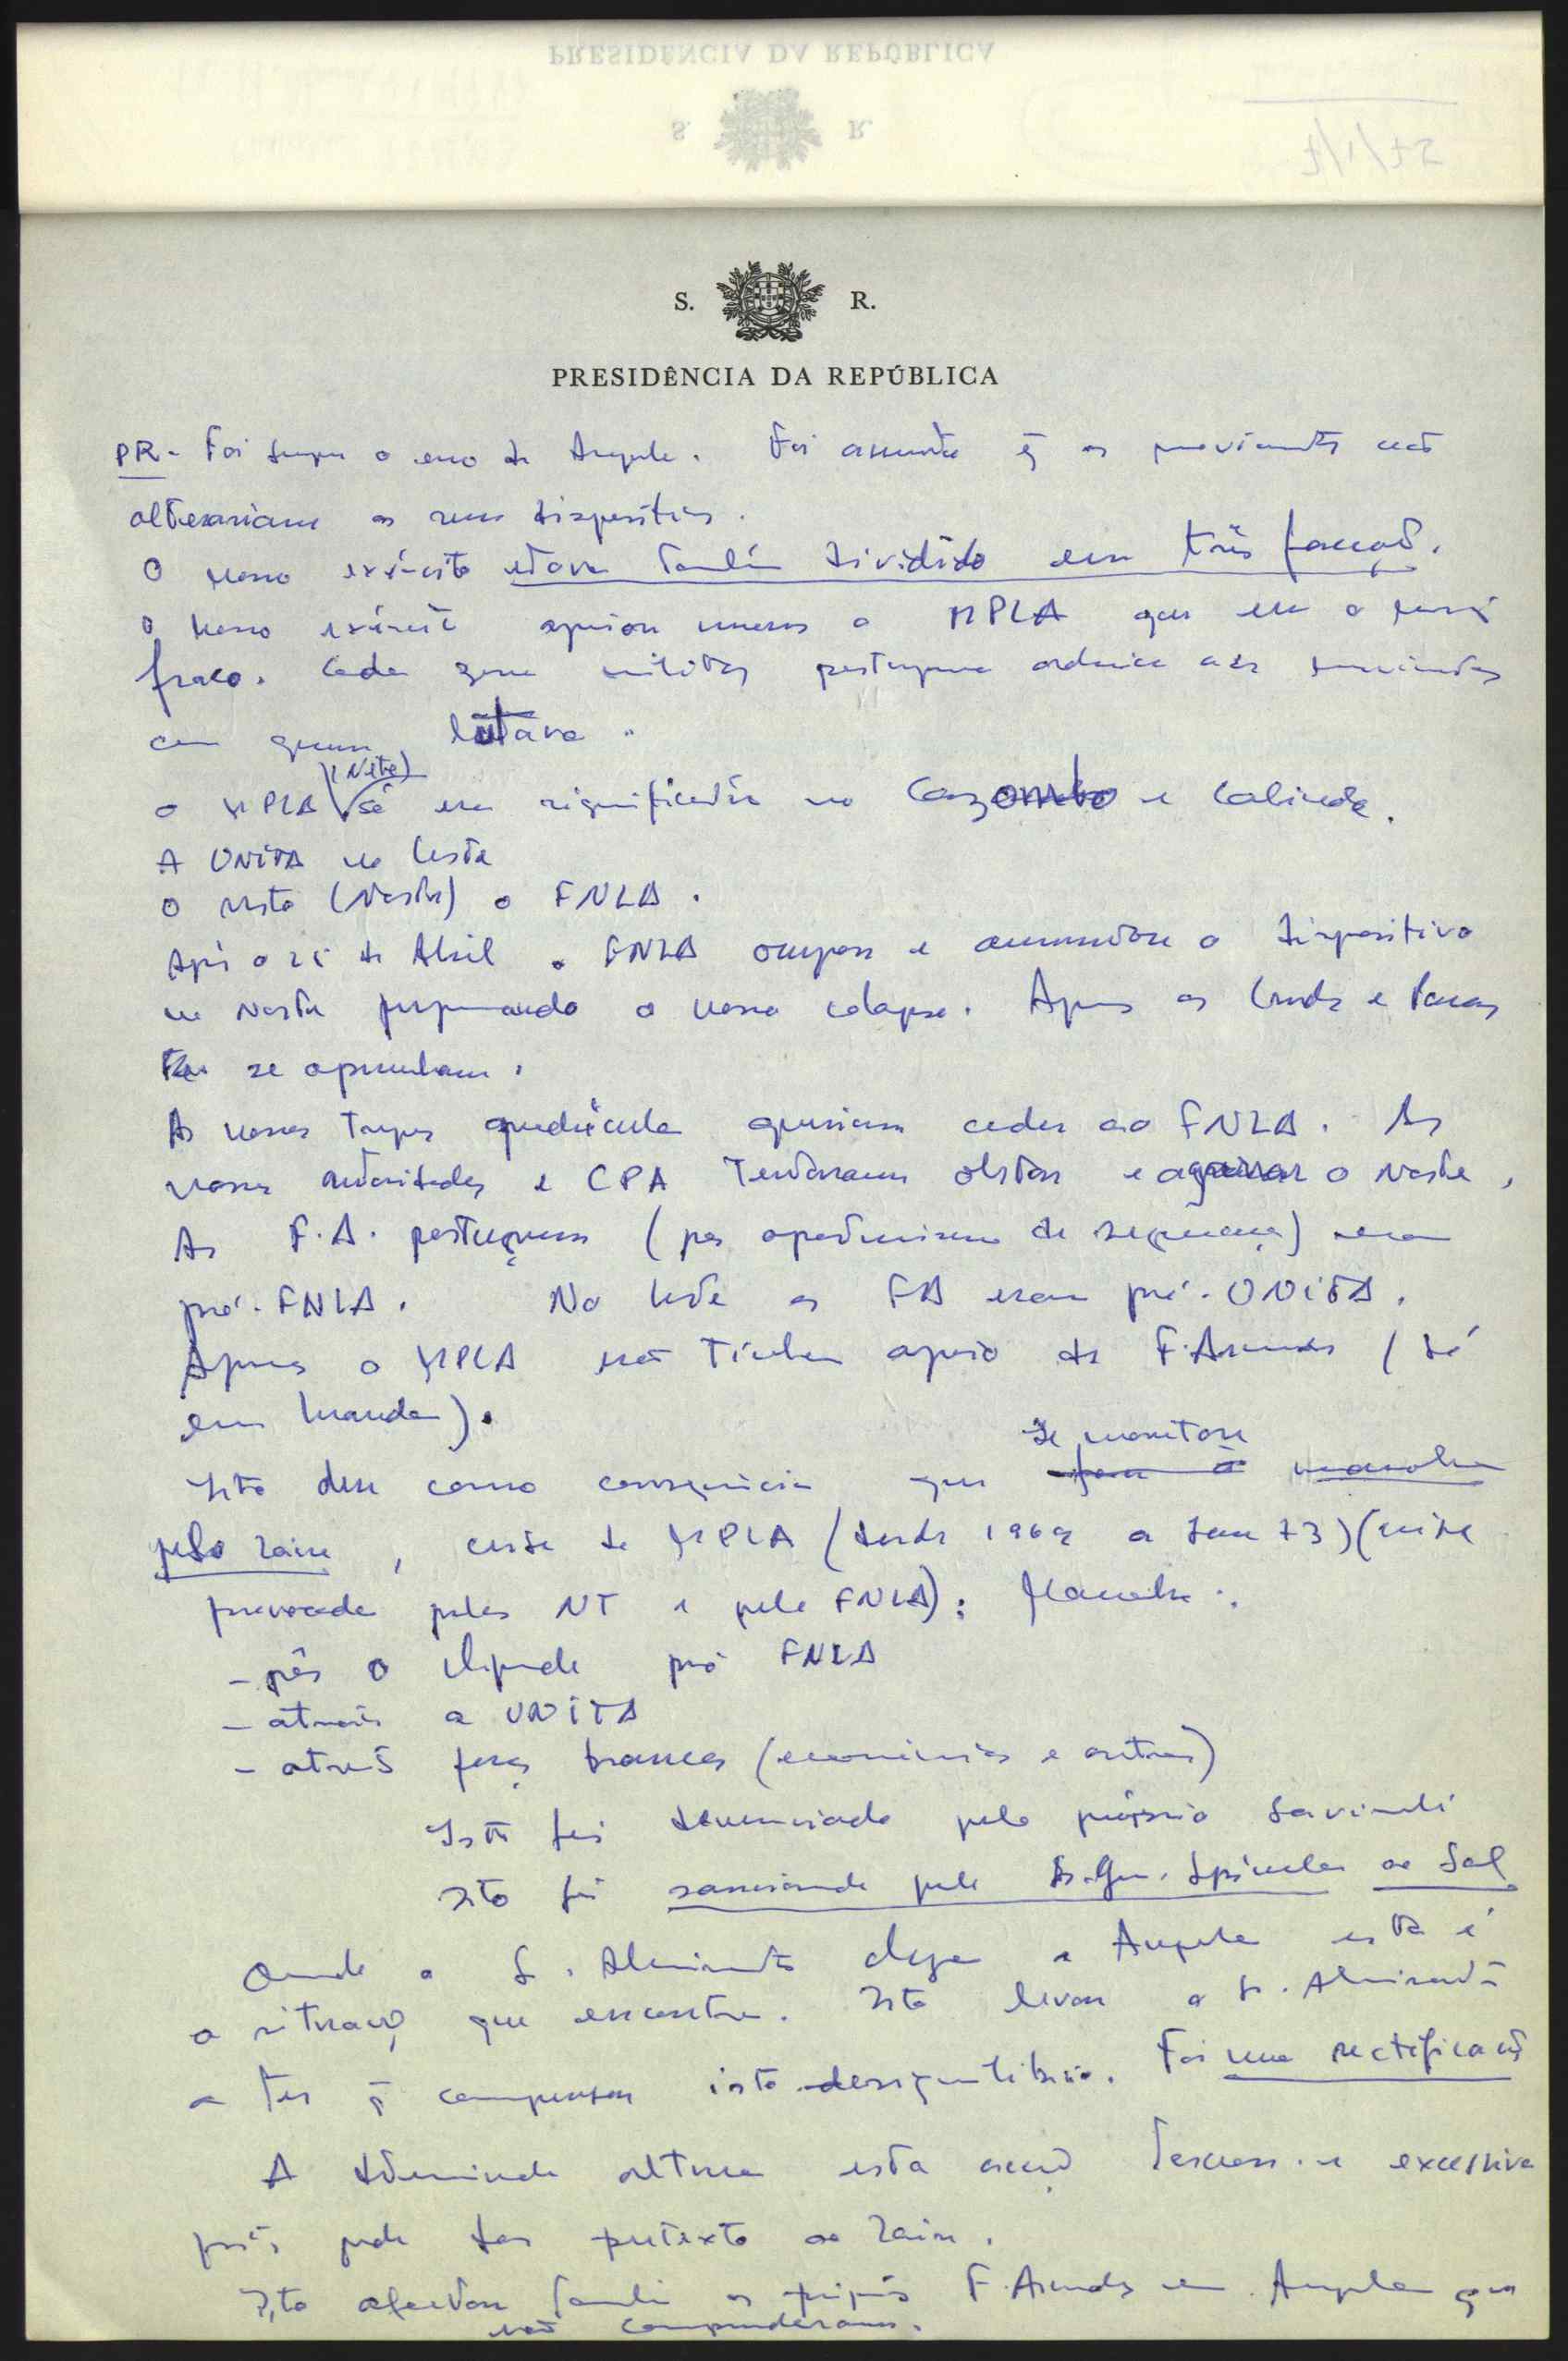 PRESIDÊNCIA DA REPÚBLICA
S. R.
S. R.
PRESIDÊNCIA DA REPÚBLICA
PR - Foi sempre o erro de Angola. Foi assente q̃ os movimentos não
alterariam os seus dispositivos.
O nosso exército estava também dividido em três facções.
O nosso exército apoiou menos o MPLA que era o mais
fraco. Cada zona militar portuguesa
com quem lutava.
O MPLA (Neto) só era significativo no Cazombo e Cabinda.
A UNITA no Leste
O resto (Norte) o FNLA.
Após o 25 de Abril o FNLA ocupou e aumentou o dispositivo
no Norte o nosso colapso. Apenas os
se opunham.
As nossas tropas quadrícula queriam ceder ao FNLA. As
nossas autoridades e CPA tentaram obstar e o Norte.
As F.A. portuguesas (por oportunismo de segurança) eram
pró-FNLA. No Leste as FA eram pró-UNITA.
Apenas o MPLA não tinha apoio das F. Armadas (só
em Luanda).
Isto deu como consequência que se montou manobra
pelo Zaire, crise do MPLA (desde 1969 a 73) (crise
provocada pelas NT e pela FNLA); manobra:
- pôs o Chipenda pró FNLA
- atraiu a UNITA
- atraiu forças brancas (económicas e outras)
Isto foi denunciado pelo próprio Savimbi
Isto foi sancionado pelo Sr. Gen. Spínola no Sal
Quando o S. Almirante chega a Angola esta é
a situação que encontra. Isto levou o S. Almirante
a ter q̃ compensar este desequilíbrio. Foi uma rectificação
A determinada altura esta acção excessiva
pois pode dar pretexto ao Zaire.
Isto afectou também as próprias F. Armadas em Angola que
não compreenderam.